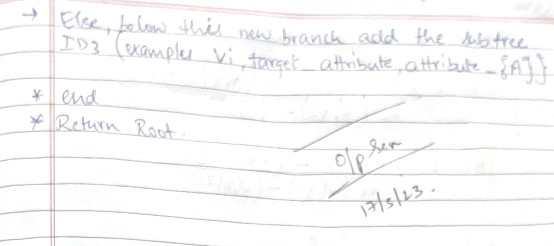 → Else, below this new branch add the subtree
ID3 (examples Vi, target_attribute, attribute-{A}})
* end
* Return Root.
O/p
17/5/23.